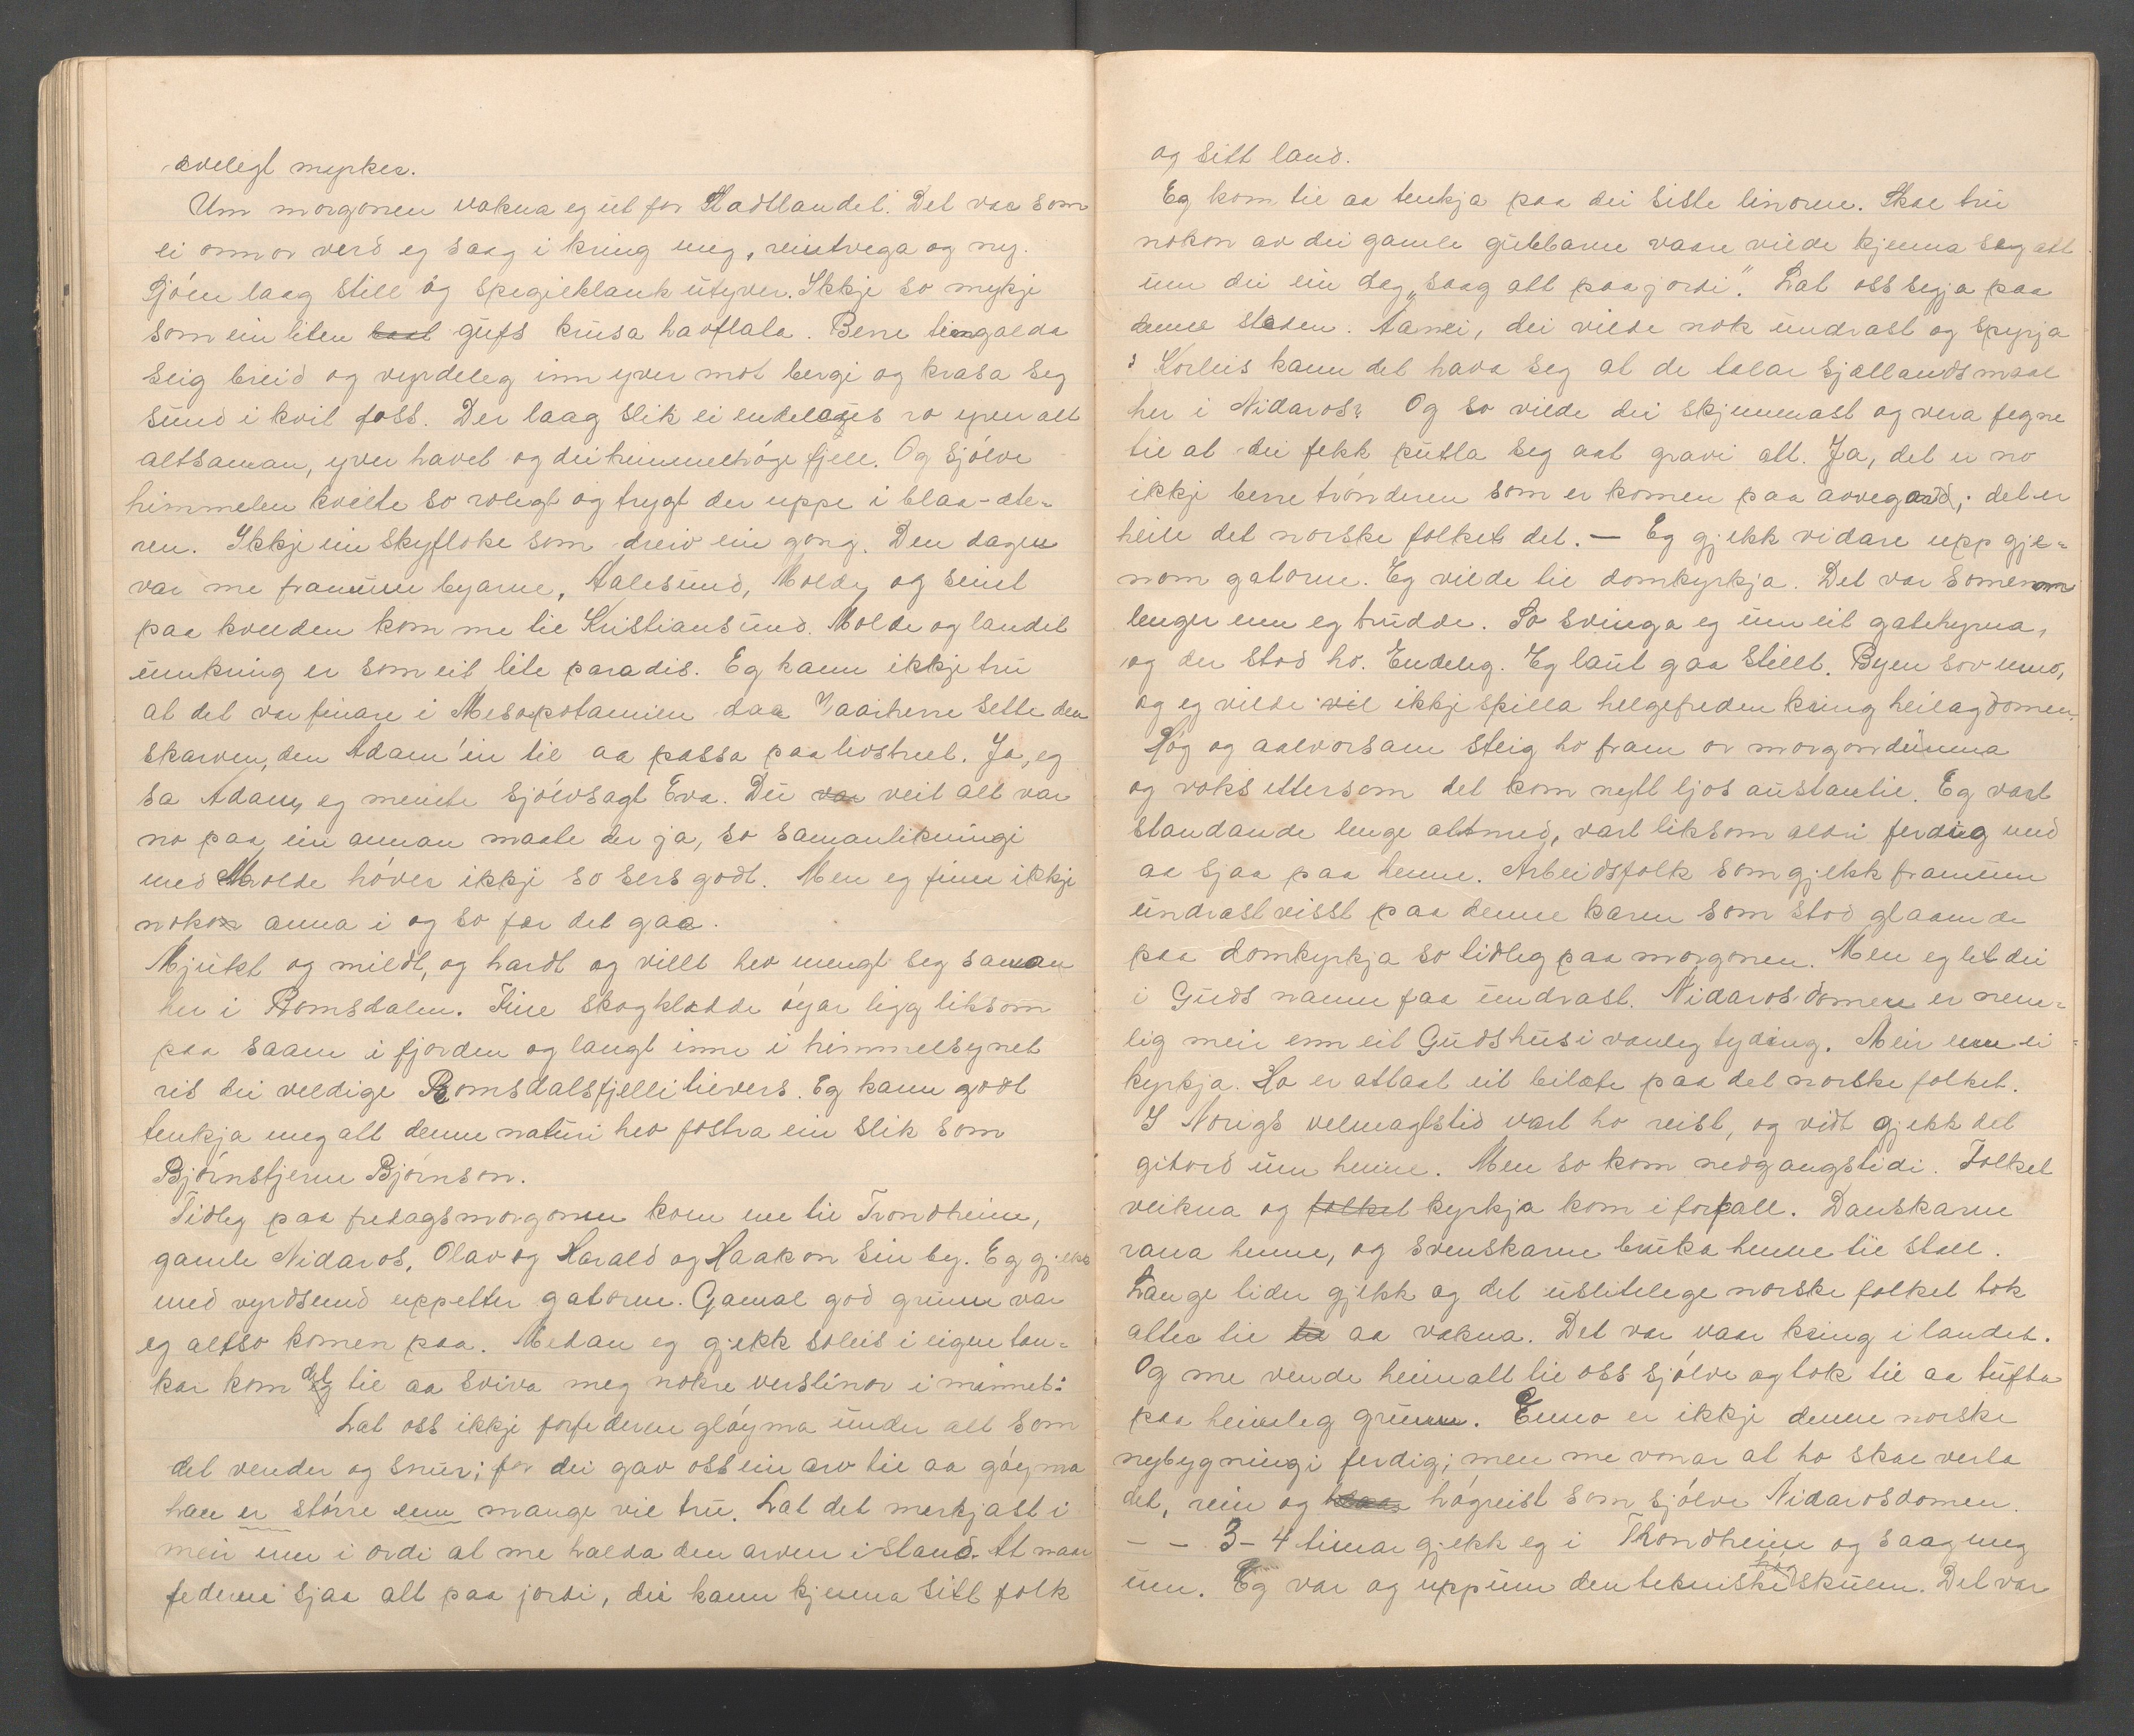 avelegt myrker.
Um morgonen vakna eg ut for Stadtlandet. Det var som
ei onnor verd eg saag i kring meg, reintvega og ny.
Sjóen laag still og spegielblank utyver. Ikkje so mykje
som ein liten gufs krusa havflata. Berre
seig breid og vyrdeleg inn yver mot bergi og krasa seg
sund i kvit foss. Der laag slik ei endelaus ro yver alt
altsaman, yver havet og dei himmelhóge fjell. Og sjólve
himmelen kvilte so rolegt og trygt der uppe i blaa-ete-
ren. Ikkje ein skyfloke som dreiv ein gong. Den dagen
var me framum byarne, Aalesund, Molde og seint
paa kvelden kom me til Kristiansund. Molde og landet
umkring er som eit lite paradis. Eg kann ikkje tru
at det var finare i Mesopotamien daa Vaarherre sette den
skarven, den Adam'en til aa passa paa livstreet. Ja, eg
sa Adam, eg meinte sjólvsagt Eva. Dei var veit alt var
no paa ein annan maate der ja, so samanlikningi
med Molde hóver ikkje so sers godt. Men eg finn ikkje
nokon anna i og so fær det gaa.
Mjukt og mildt, og hardt og villt hev mengt seg saman
her i Romsdalen. Fine skogklædde óyar ligg liksom
paa saam i fjorden og langt inne i himmelsynet
ris dei veldige Romsdalsfjelli tilvers. Eg kann godt
tenkja meg att denne naturi hev fostra ein slik som
Bjórnstjerne Bjórnson.
Tidleg paa fredagsmorgonen kom me til Trondheim,
gamle Nidaros, Olav og Harald og Haakon sin by. Eg gjekk
med vyrdsemd uppetter gatorne. Gamal god grunn var
eg altso komen paa. Medan eg gjekk soleis i eigne tan-
kar kom det til aa sviva meg nokre verslinor i minnet:
Lat oss ikkje forfederne glóyma under alt som
det vender og snur; for dei gav oss ein arv til aa góyma
han er stórre enn mange vil tru. Lat det merkjast i
meir enn i ordi at me halda den arven i stand. At naar
federne sjaa att paa jordi, dei kann kjenna sitt folk
og sitt land.
Eg kom til aa tenkja paa dei siste linorne. Skal tru
nokon av dei gamle gubbarne vaare vilde kjenna seg att
um dei ein dag „saag att paa jordi". Lat oss segja paa
denne staden. Aanei, dei vilde nok undrast og spyrja
: Korleis kann det hava seg at de talar Sjællandsmaal
her i Nidaros? Og so vilde dei skjemmast og vera fegne
til at dei fekk putla seg aat gravi att. Ja, det er no
ikkje berre trónderen som er komen paa avvegaad; det er
heile det norske folket det. — Eg gjekk vidare upp gje-
nom gatorne. Eg vilde til domkyrkja. Det var
lenger enn eg trudde. So svinga eg um eit gatehyrna,
og der stod ho. Endeleg. Eg laut gaa stillt. Byen sov enno,
og eg vilde vil ikkje spilla helgefreden kring heilagdomen.
Hóg og aalvorsam steig ho fram or morgondimma
og voks ettersom det kom nytt ljos austantil. Eg vart
standande lenge attmed, vart liksom aldri ferdig med
aa sjaa paa henne. Arbeidsfolk som gjekk framum
undrast visst paa denne karen som stod glaamde
paa domkyrkja so tidleg paa morgonen. Men eg let dei
i Guds namn faa undrast. Nidarosdomen er nem-
lig meir enn eit Gudshus i vanleg tyding. Meir enn ei
kyrkja. Ho er attaat eit bilæte paa det norske folket.
I Norigs velmagtstid vart ho reist, og vidt gjekk det
gitord um henne. Men so kom nedgangstidi. Folket
veikna og folket kyrkja kom i forfall. Danskarne
rana henne, og svenskarne bruka henne til stall.
Lange tider gjekk og det uslitelege norske folket tok
atter til aa vakna. Det var vaar kring i landet.
Og me vende heimatt til oss sjólve og tok til aa tufta
paa heimleg grunn. Enno er ikkje denne norske
nybygningi ferdig; men me vonar at ho skal verta
det, rein og hógreist som sjólve Nidarosdomen.
— — 3-4 timar gjekk eg i Trondheim og saag meg
um. Eg var og uppum den tekniske hógskulen. Det var